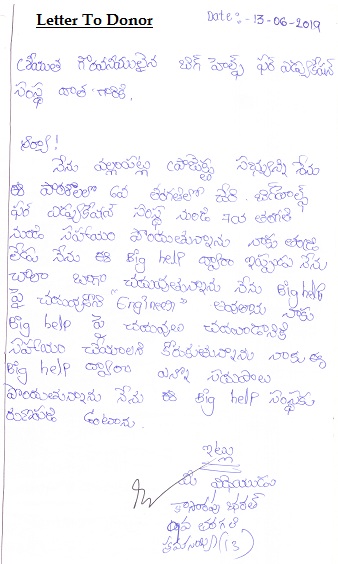 Letter To Donor
Date:- 13-06-2019
శ్రీయుత గౌరవనీయులైన బిగ్ హెల్ప్ ఫర్ ఎడ్యుకేషన్
సంస్థ దాత గారికి.
అయ్యా!
నేను
ఈ పాఠశాలలో 6వ తరగతిలో చేరి బిగ్ హెల్ప్
ఫర్ ఎడ్యుకేషన్ సంస్థ నుండి 7వ తరగతి
నుండి సహాయం పొందుతున్నాను నాకు తండ్రి
లేడు నేను ఈ Big help ద్వారా ఇప్పుడు నేను
చాలా బాగా చదువుతున్నాను నేను Big help
పై చదువుకొని "Engineer" అవుతాను నాకు
Big help పై చదువులు చదవడానికి
సహాయం చేయాలని కోరుకుతున్నాను నాకు ఈ
Big help ద్వారా ఎన్నో సదుపాలు
పొందుతున్నాను నేను ఈ Big help సంస్థకు
రుణపడి ఉంటాను.
ఇట్లు
మీ విధేయుడు
భరత్
10వ తరగతి
(13)